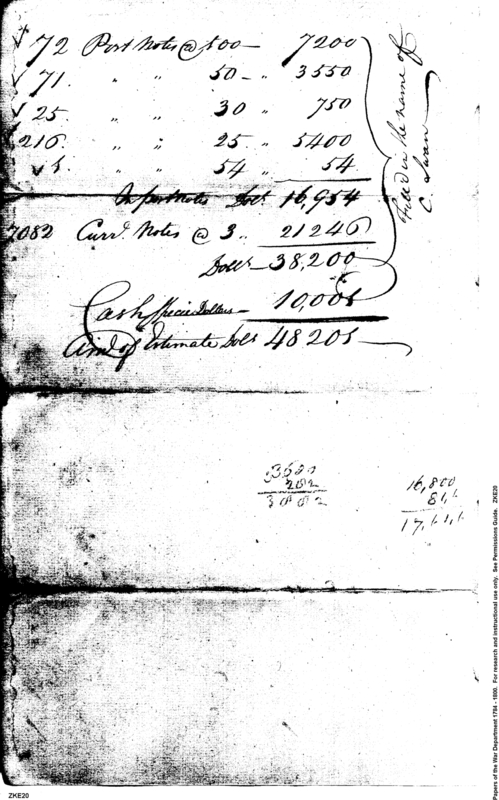 ✓ 72 Post Notes @ 100 — 7200
✓ 71. " " 50 - " 3550
✓ 25. " " 30 " 750
216. " " 25. " 5400
✓ 1. " " 54 " 54
In post notes Dolls. 16,954
7082 Currt. Notes @ 3.. 21246
Dolls — 38,200
Cash, Specie Dollars — 10,005
Amt. of Estimate Dolls 48205
Filled in the name of
C. Swan
3500
202
16,800
17,
Papers of the War Department 1784 - 1800. For research and instructional use only. See Permissions Guide. ZKE20
ZKE20